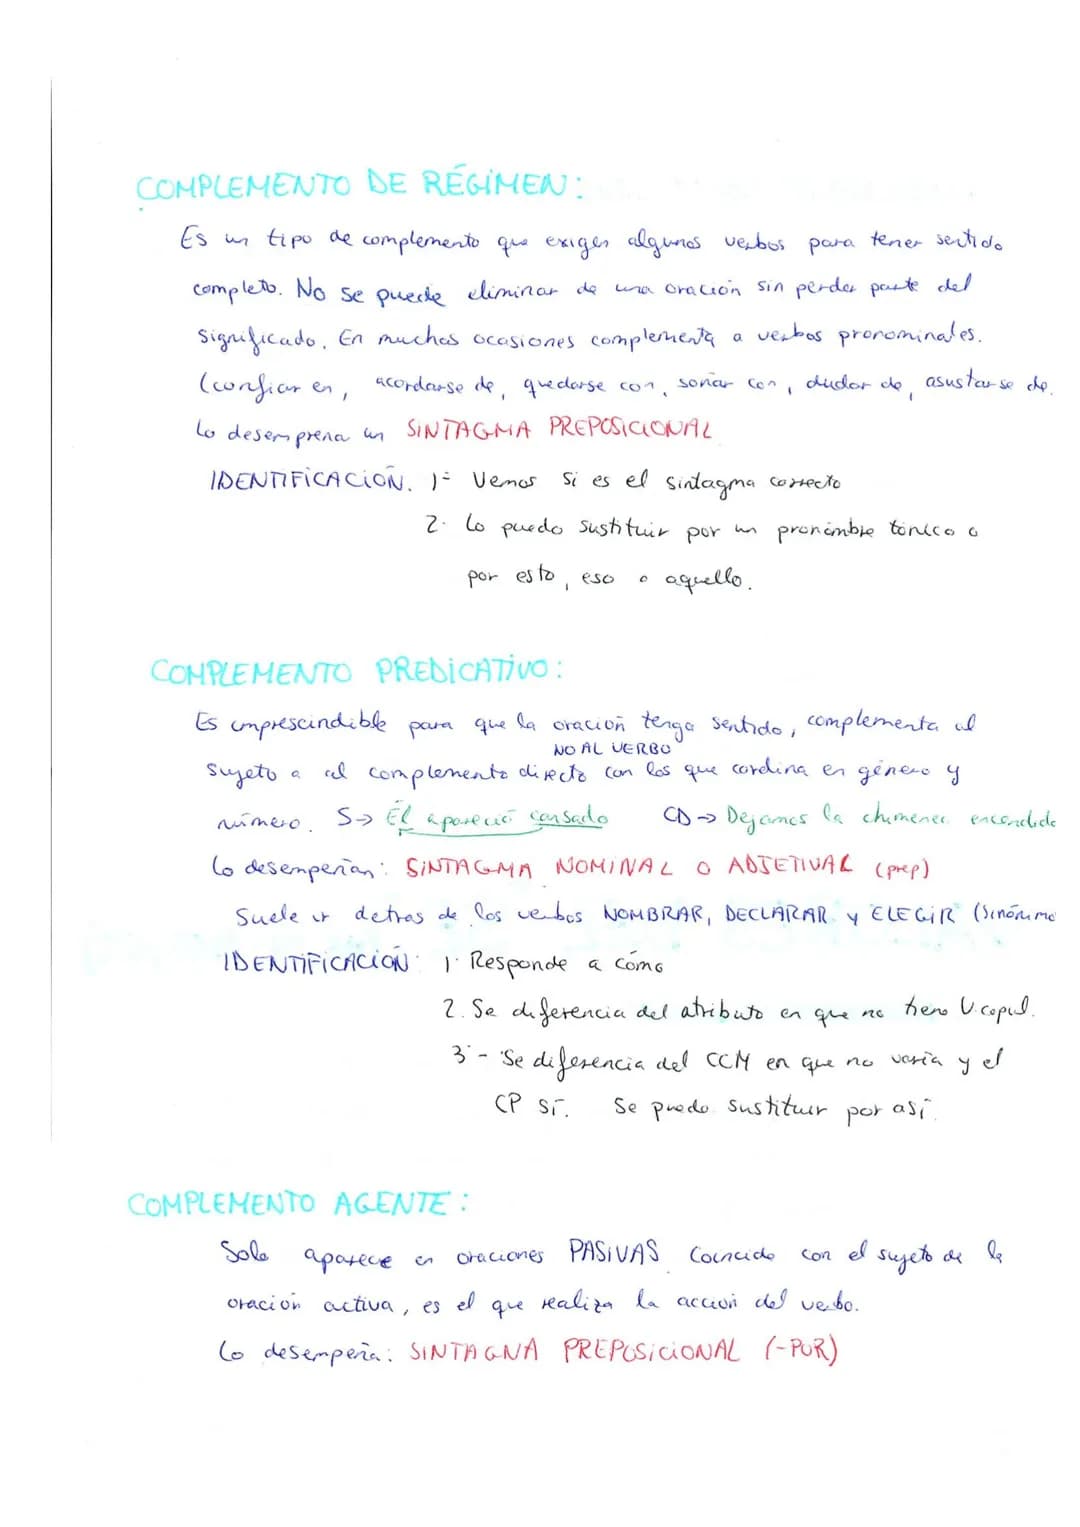 COMPLEMENTO DE RÉGIMEN:
Es un tipo de complemento que exigen algunos verbos para tener sentido
completo. No se puede eliminar de una oración sin perder parte del
significado. En muchas ocasiones complementa a verbos pronominales.
(confiar en, acordarse de, quedarse con, soñar con, dudar de, asustarse de.
Lo desempeña un SINTAGMA PREPOSICIONAL
IDENTIFICACIÓN. 1- Vemos si es el sintagma correcto
2. Lo puedo sustituir por un pronombre tónico o
por esto, eso o aquello.
COMPLEMENTO PREDICATIVO:
Es imprescindible para que la oración tenga sentido, complementa al
NO AL VERBO
sujeto o al complemento directo con los que cordina en género y
número. S→ Él apareció cansado CD→ Dejamos la chimenea encendida
Lo desempeñan: SINTAGMA NOMINAL O ADJETIVAL (prep)
Suele ir detras de los verbos NOMBRAR, DECLARAR y ELEGIR (Sinónimo
IDENTIFICACIÓN: 1. Responde a cómo
2. Se diferencia del atributo en que no tiene V.copul.
3.- Se diferencia del CCM en que no varía y el
CP sí. Se puede sustituir por así.
COMPLEMENTO AGENTE:
Solo aparece en oraciones PASIVAS Coincide con el sujeto de la
oración activa, es el que realiza la acción del verbo.
Lo desempeña: SINTAGNA PREPOSICIONAL (-POR)